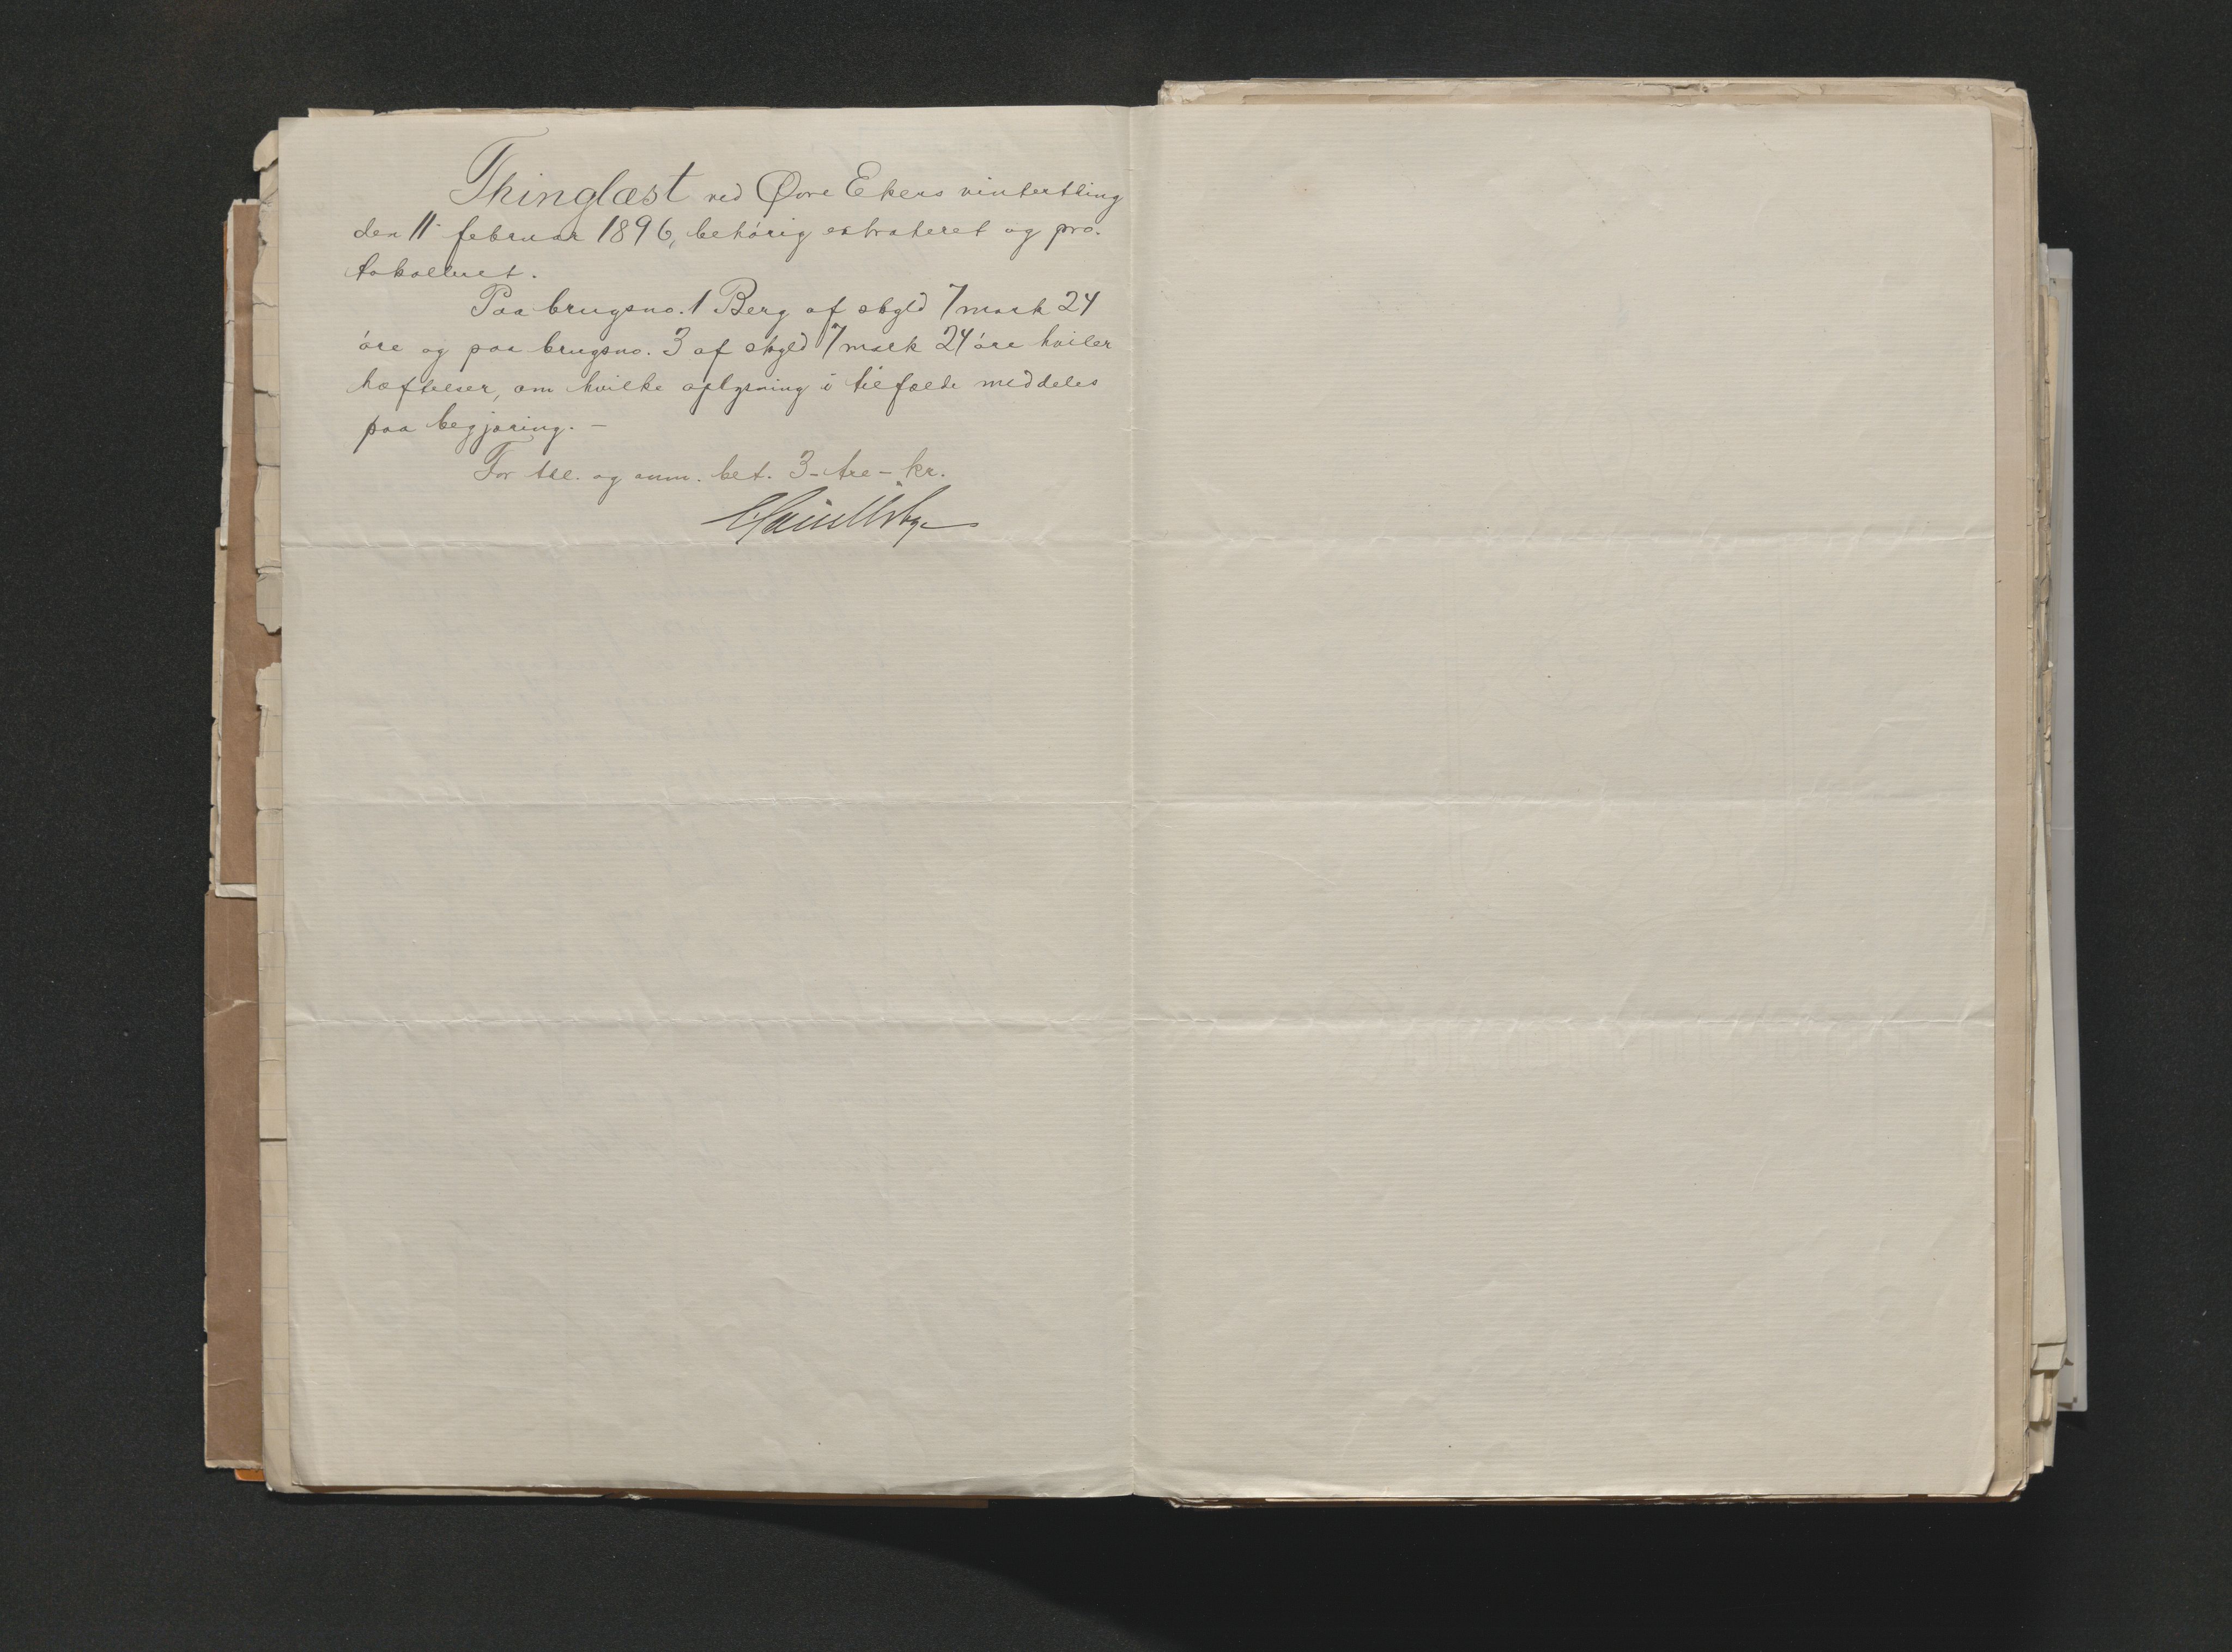 Thinglæst ved Øvre Ekers vinterthing
den 11 februar 1896, behörig extraheret og pro-
tokolleret.
Paa brugsno. 1 Berg af skyld 7 mark 24
öre og paa brugsno. 3 af skyld 7 mark 24 öre hviler
hæftelser, om hvilke oplysning i tilfælde meddeles
paa begjæring. —
For thl. og anm. bet. 3 - tre - kr.